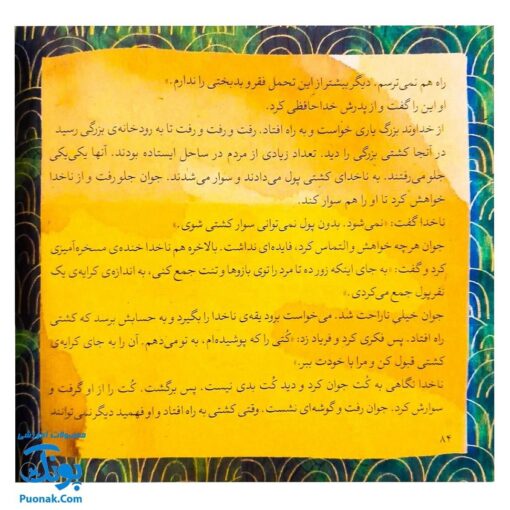 راه هم نمی‌ترسم. دیگر بیشتر از این تحمل فقر و بدبختی را ندارم.»
او این را گفت و از پدرش خداحافظی کرد.
از خداوند بزرگ یاری خواست و به راه افتاد. رفت و رفت و رفت تا به رودخانه‌ی بزرگی رسید.
در آنجا کشتی بزرگی را دید. تعداد زیادی از مردم در ساحل ایستاده بودند. آنها یکی‌یکی
جلو می‌رفتند، به ناخدای کشتی پول می‌دادند و سوار می‌شدند. جوان جلو رفت و از ناخدا
خواهش کرد تا او را هم سوار کند.
ناخدا گفت: «نمی‌شود. بدون پول نمی‌توانی سوار کشتی شوی.»
جوان هرچه خواهش و التماس کرد، فایده‌ای نداشت. بالاخره هم ناخدا خنده‌ی مسخره‌آمیزی
کرد و گفت: «به جای اینکه زور ده تا مرد را توی بازوها و تنت جمع کنی، به اندازه‌ی کرایه‌ی یک
نفر پول جمع می‌کردی.»
جوان خیلی ناراحت شد. می‌خواست برود یقه‌ی ناخدا را بگیرد و به حسابش برسد که کشتی
راه افتاد. پس فکری کرد و فریاد زد: «کُتی را که پوشیده‌ام، به تو می‌دهم. آن را به جای کرایه‌ی
کشتی قبول کن و مرا با خودت ببر.»
ناخدا نگاهی به کُت جوان کرد و دید کُت بدی نیست. پس برگشت. کُت را از او گرفت و
سوارش کرد. جوان رفت و گوشه‌ای نشست. وقتی کشتی به راه افتاد و او فهمید دیگر نمی‌توانند
۸۴
محصولات آموزشی
پونک
Puonak.Com